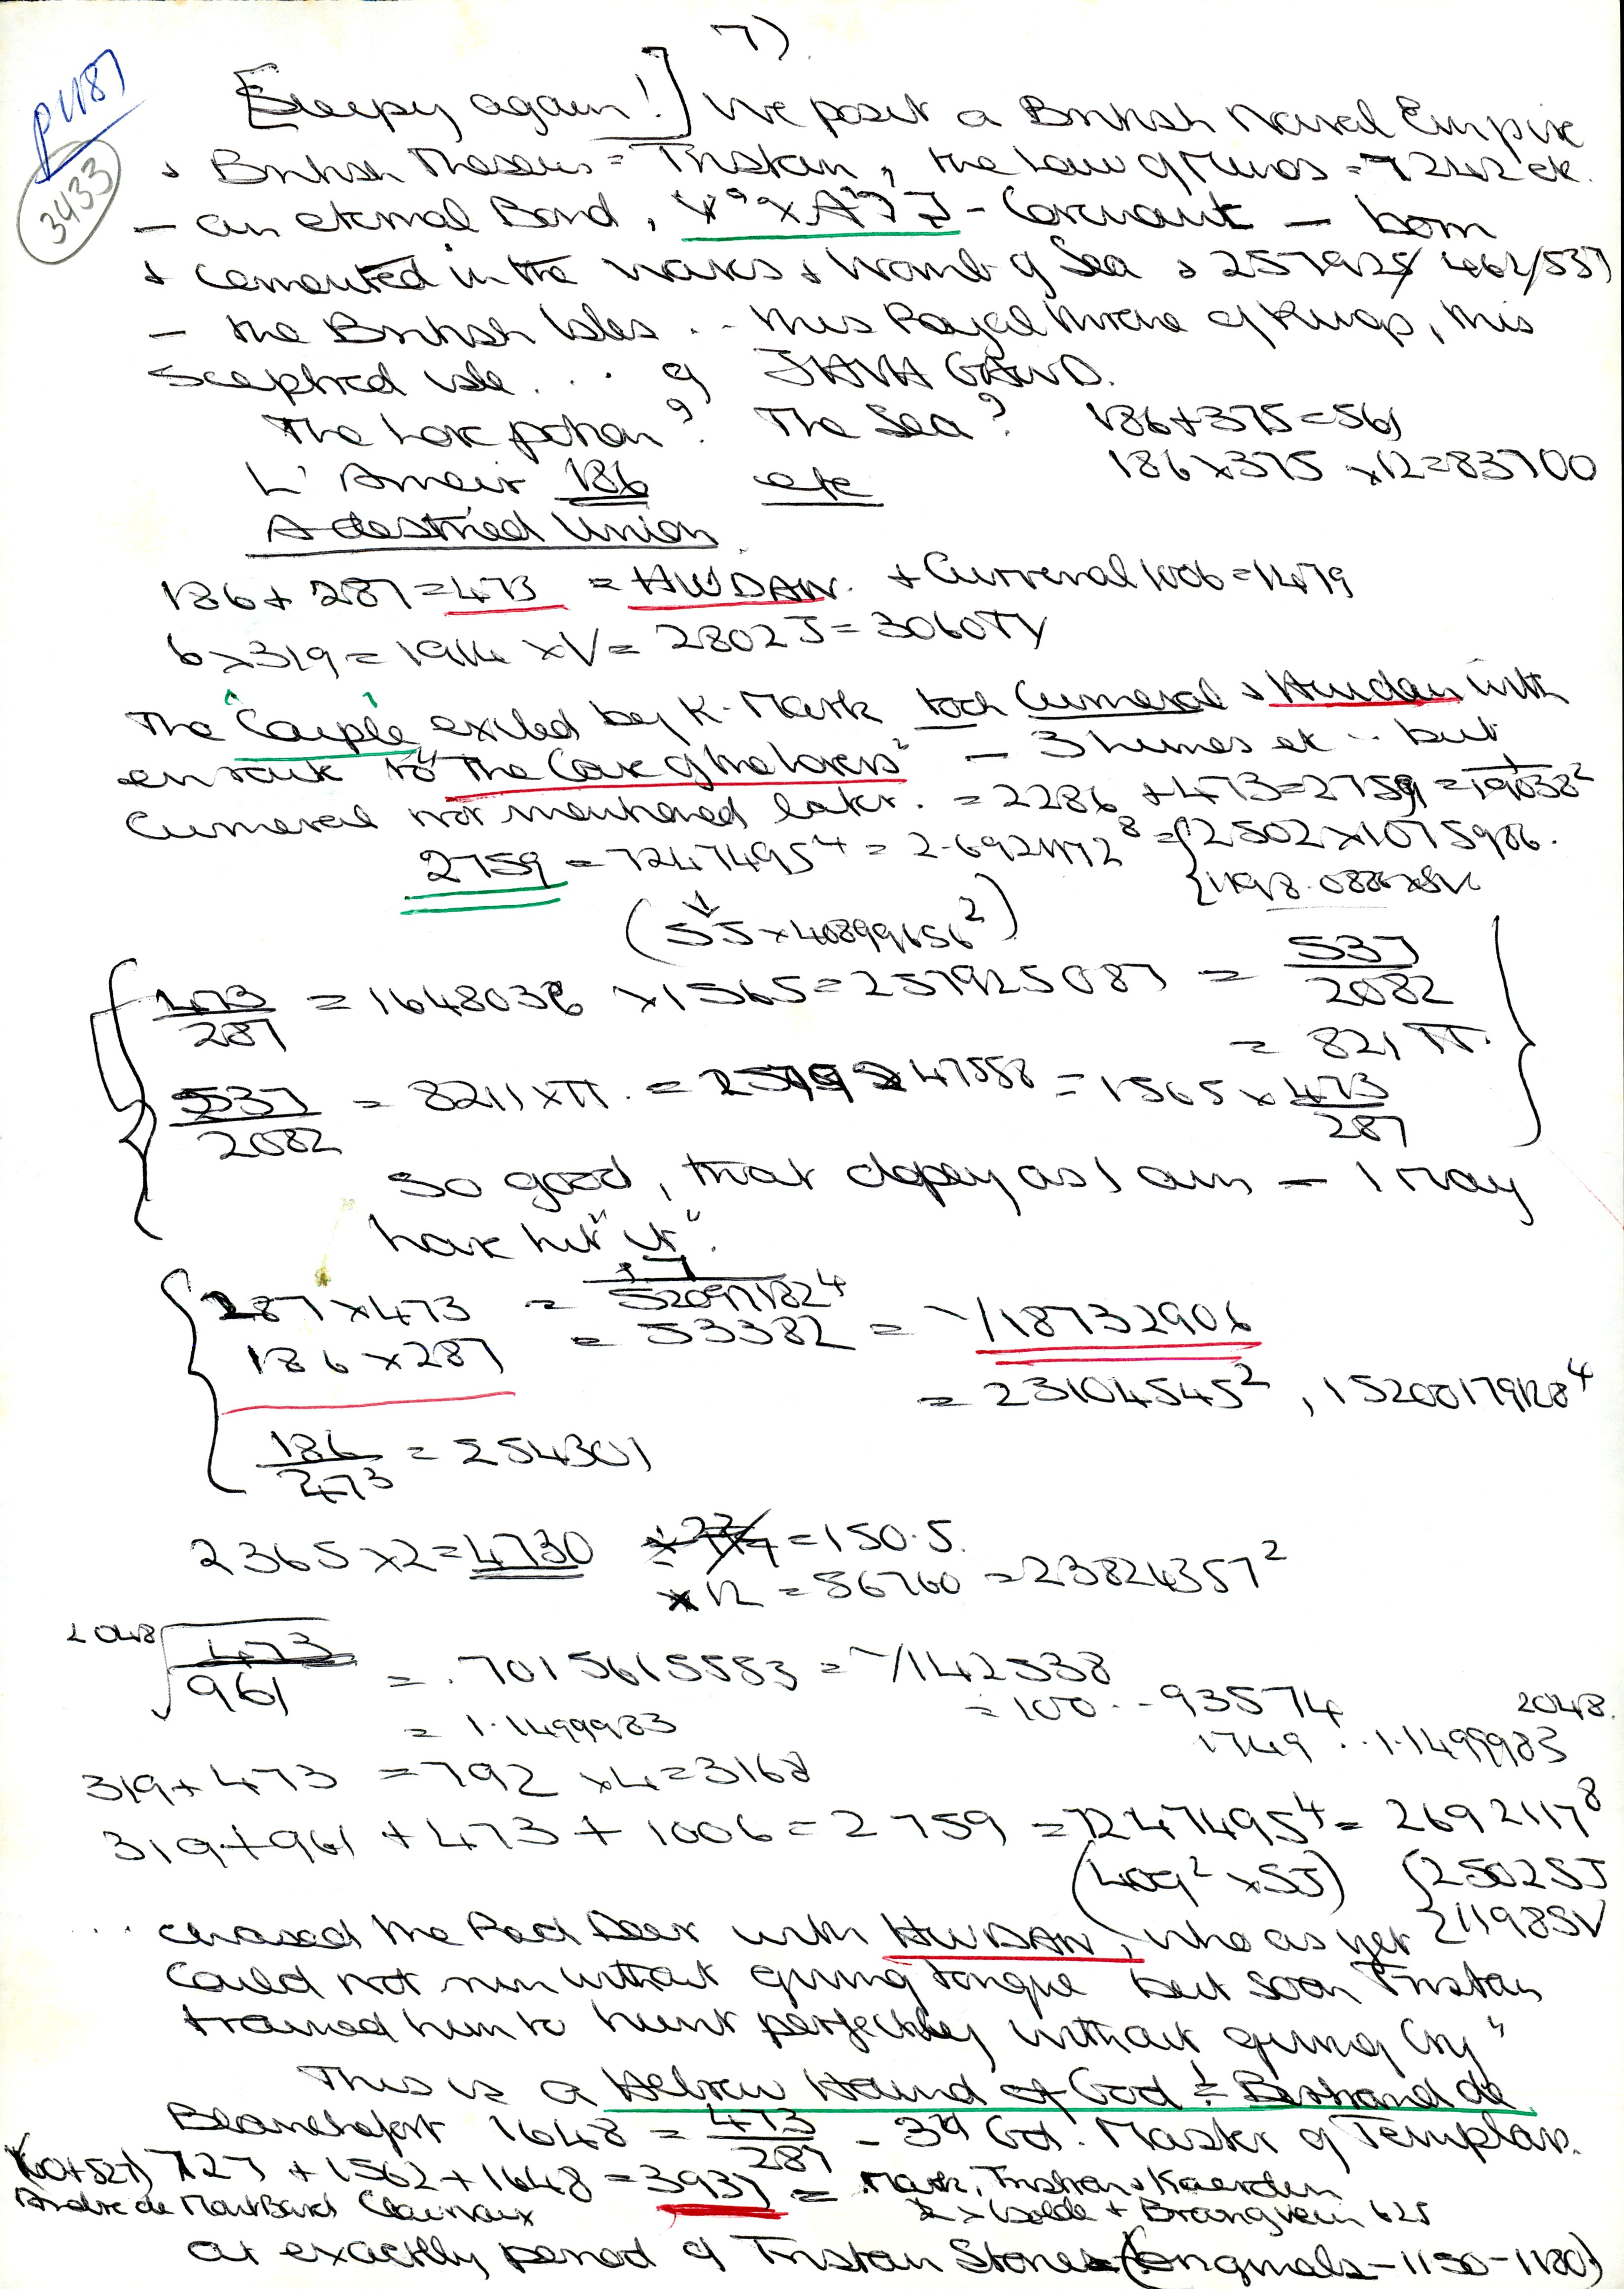 7)
p1187
3433
[Sleepy again!] We posit a British Naval Empire
& British Theseus = Tristan, the Law of Minos = 7242 etc.
– an eternal Bond, – Covenant – born
& cemented in the waves & womb of Sea & 257925/ 462/537
– the British Isles .. this Royal throne of Kings, this
Sceptred isle. . . of JAVA GAWD.
The Love potion? The Sea? 186+375=561
L'Amoir 186 etc 186 x 375 x 12=83700
A destined Union
186 + 287 = 473 = HUDAN. + Curvenal 1006 = 1479
6 x 319 = 1914 x V = 2802 J = 3060 TY
The "Couple" exiled by K. Mark took Curneval & Hudan with
en route to "The Cave of the lovers" – 3 hunes etc .. but
Curneval not mentioned later. = 2286 + 473=2759 = 19038²
2759 = 7247495⁴ = 2.6921172⁸ = { 2502 x 1075986.
{ 1198.088 x SV
(5J x 40899656²)
473/287 = 1648038 x 1565 = 257925087 = 537/2082
= 821 π.
537/2082 = 8211 x π. = 2579247588 = 1565 x 473/287
so good, that dopey as I am – I may
have hit "it".
287 x 473 = 52097182⁴
186 x 287 = 53382 = √18732906
= 23104545², 15200179128⁴
186/473 = 254301
2365 x 2 = 4730 = 150.5.
x 12 = 56760 = 23824357²
2048√473/961 = .7015615583 = √142538
= 1.1499983 = 100 .. 93574 2048.
1749 .. 1.1499983
319 + 473 = 792 x 4 = 3168
319 + 961 + 473 + 1006 = 2759 = 7247495⁴ = 2692117⁸
(409² x 5J) { 2502 5J
{ 1198 SV
.. chased the Red Deer with HUDAN, who as yet
could not run without giving tongue but soon Tristan
trained him to hunt perfectly without giving Cry"
This is a Hebrew Hound of God != Bertrand de
Blanchefort 1648 = 473/287 – 3rd Gd. Master of Templars.
(200+527) 727 + 1562 + 1648 = 3937 = Mark, Tristan & Kaerdin
Andre de MontBard Clairvaux 2 x Isolde + Brangwein 625
at exactly period of Tristan Stories (originals – 1150–1180)